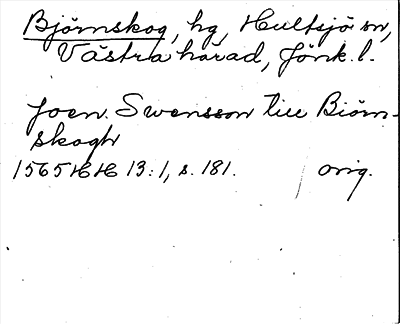 Björnskog, hg, Hultsjö sn,
Västra härad, Jönk. l.
Joen Swensson till Biörn-
skogh
1565 HH 13:1, s. 181. orig.